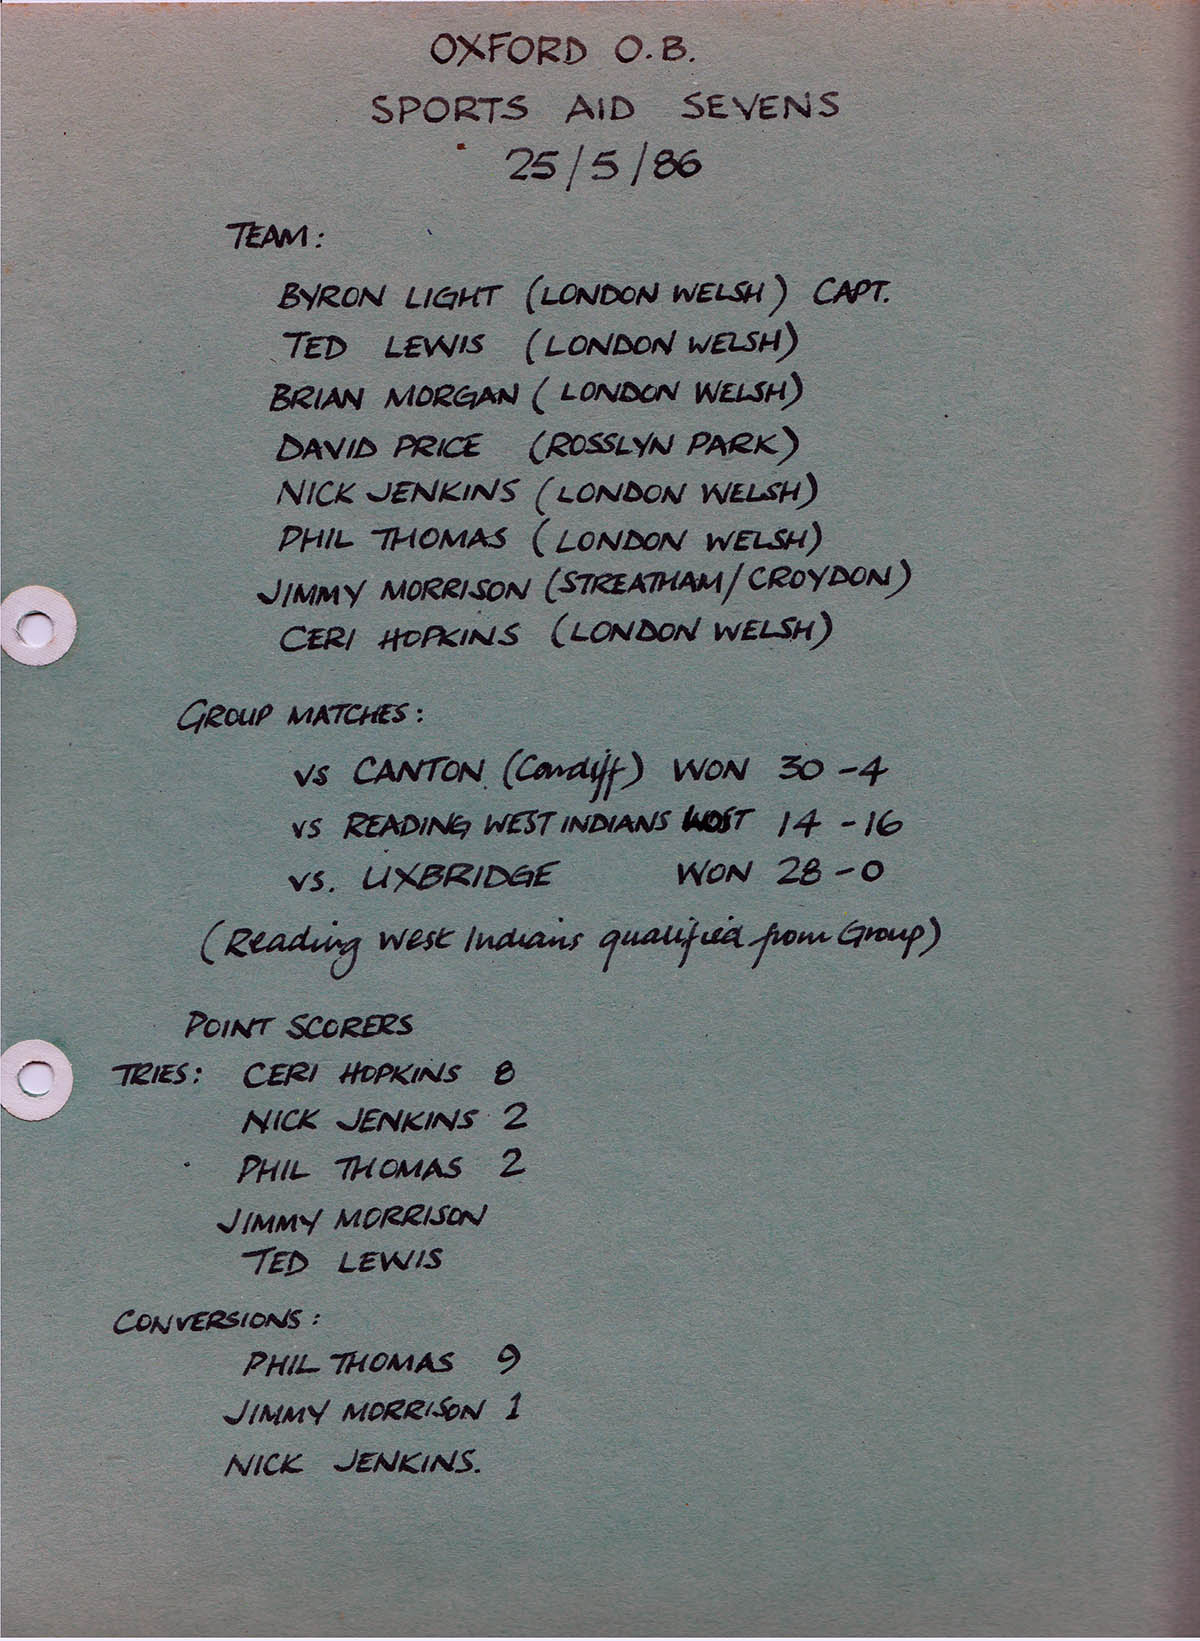 OXFORD O.B.
SPORTS AID SEVENS
25/5/86
TEAM:
BYRON LIGHT (LONDON WELSH) CAPT.
TED LEWIS (LONDON WELSH)
BRIAN MORGAN (LONDON WELSH)
DAVID PRICE (ROSSLYN PARK)
NICK JENKINS (LONDON WELSH)
PHIL THOMAS (LONDON WELSH)
JIMMY MORRISON (STREATHAM/CROYDON)
CERI HOPKINS (LONDON WELSH)
GROUP MATCHES:
vs CANTON (Cardiff) WON 30-4
vs READING WEST INDIANS LOST 14-16
vs. UXBRIDGE WON 28-0
(Reading West Indians qualified from Group)
POINT SCORERS
TRIES: CERI HOPKINS 8
NICK JENKINS 2
PHIL THOMAS 2
JIMMY MORRISON
TED LEWIS
CONVERSIONS:
PHIL THOMAS 9
JIMMY MORRISON 1
NICK JENKINS.